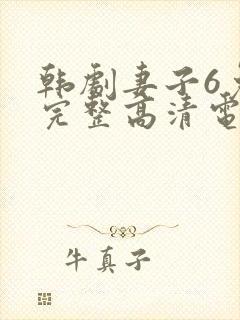 韩剧妻子6
完整高清電
牛真子